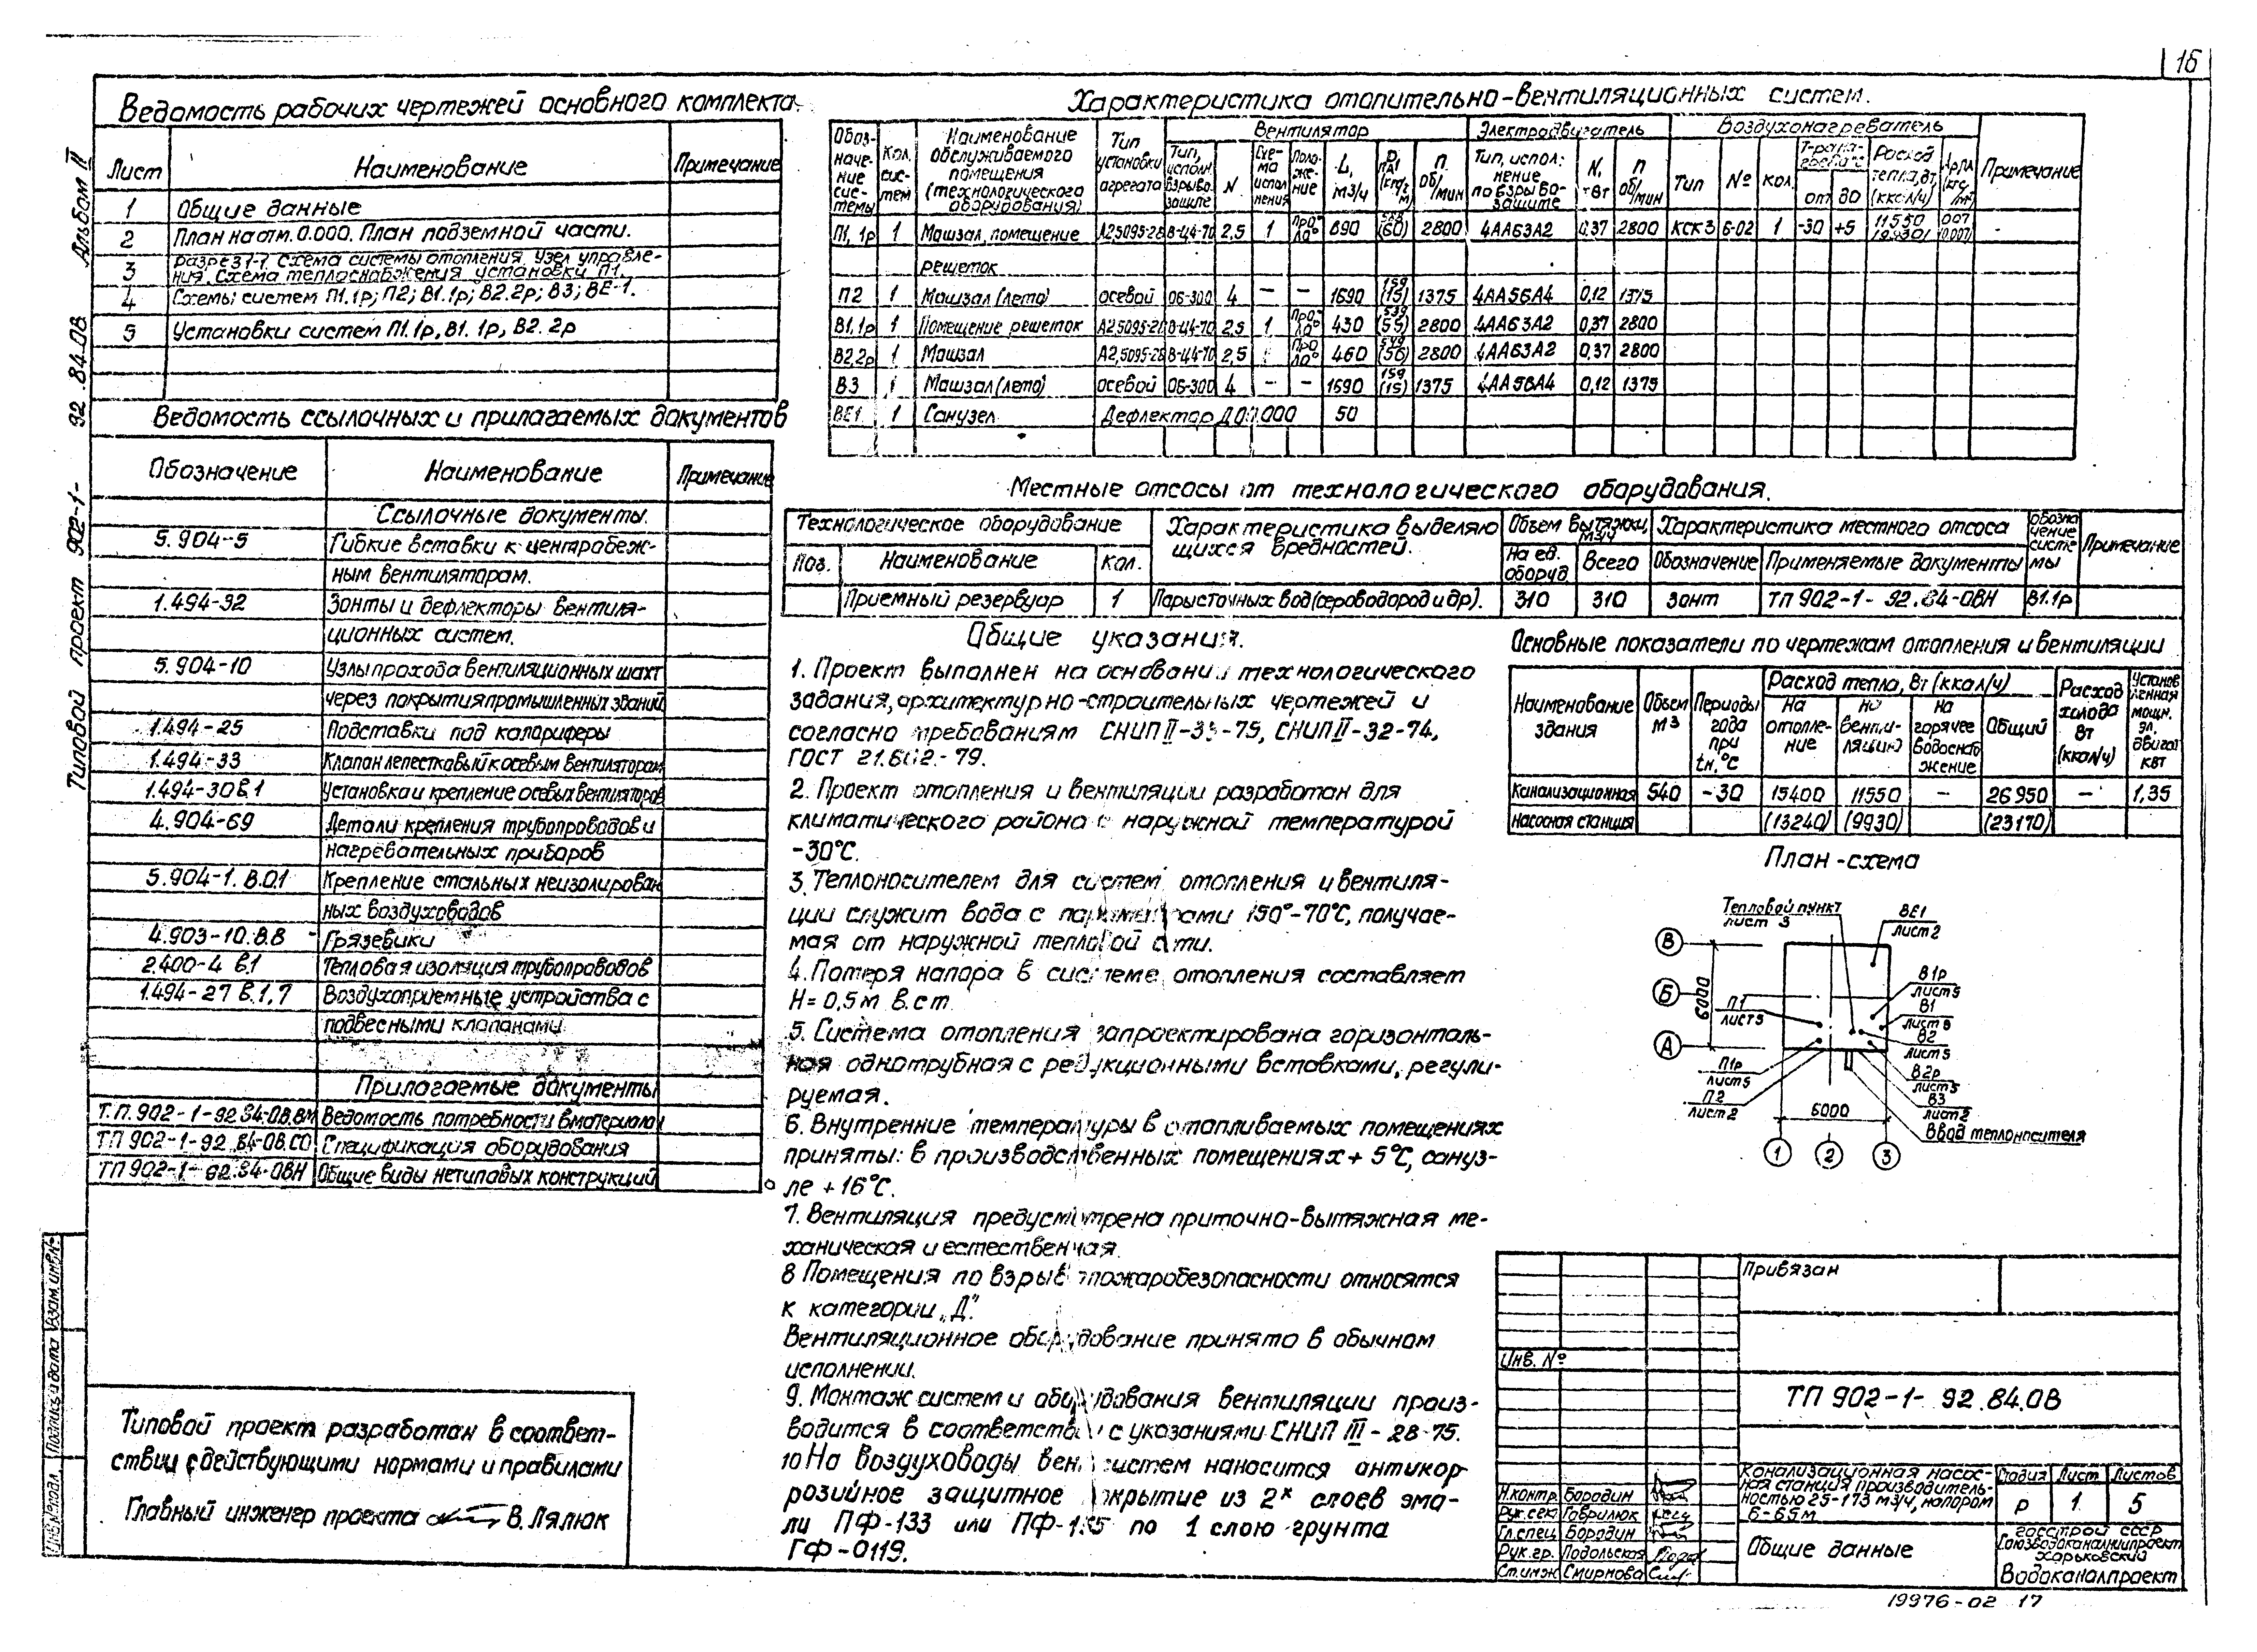 16
Альбом II
Типовой проект 902-1-92.84.ОВ
Ведомость рабочих чертежей основного комплекта
Лист Наименование Примечание
1 Общие данные
2 План на отм. 0.000. План подземной части.
3 Разрез 1-1. Схема системы отопления. Узел управле-
ния. Схема теплоснабжения установки П1.
4 Схемы систем П1.1р; П2; В1.1р; В2.2р; В3; ВЕ-1.
5 Установки систем П1.1р, В1.1р, В2.2р
Ведомость ссылочных и прилагаемых документов
Обозначение Наименование Примечание
Ссылочные документы.
5.904-5 Гибкие вставки к центробеж-
ным вентиляторам.
1.494-32 Зонты и дефлекторы вентиля-
ционных систем.
5.904-10 Узлы прохода вентиляционных шахт
через покрытия промышленных зданий
1.494-25 Подставки под калориферы
1.494-33 Клапан лепестковый к осевым вентиляторам
1.494-30 в.1 Установка и крепление осевых вентиляторов
4.904-69 Детали крепления трубопроводов и
нагревательных приборов
5.904-1. В.0.1 Крепление стальных неизолирован
ных воздуховодов
4.903-10.В.8 Грязевики
2.400-4 в.1 Тепловая изоляция трубопроводов
1.494-27 в.1,7 Воздухоприемные устройства с
подвесными клапанами
Прилагаемые документы
Т.П. 902-1-92.84-ОВ.ВМ Ведомость потребности в материалах
ТП 902-1-92.84-ОВ.СО Спецификация оборудования
ТП 902-1-92.84-ОВН Общие виды нетиповых конструкций
Типовой проект разработан в соответ-
ствии с действующими нормами и правилами
Главный инженер проекта В. Лялюк
Характеристика отопительно-вентиляционных систем.
Обоз-
наче-
ние
сис-
темы
Кол.
сис-
тем
Наименование
обслуживаемого
помещения
(технологического
оборудования)
Тип
установки
агрегата
Вентилятор Электродвигатель Воздухонагреватель Примечание
Тип,
исполн.
взрыво-
защите
N
Схе-
ма
испол
нения
Поло-
же-
ние
L,
м3/ч
Р,
Па
(кгс/
м²)
п
об/
мин
Тип, испол-
нение
по взрыво-
защите
N,
кВт
п
об/
мин
Тип № Кол.
Т-ра на-
грева °С
от до
Расход
тепла, Вт
(ккал/ч)
П1, 1р 1 Машзал, помещение А2,5095-2в В-Ц4-70 2,5 1 Про° Л0° 890 588 (60) 2800 4АА63А2 0,37 2800 КСК3 6-02 1 -30 +5 11550 (9930) 0,07 (0,007) -
решеток
П2 1 Машзал (лето) осевой 06-300 4 — — 1690 159 (15) 1375 4АА56А4 0,12 1375
В1,1р 1 Помещение решеток А2,5095-2в В-Ц4-70 2,5 1 Про° Л0° 430 539 (55) 2800 4АА63А2 0,37 2800
В2,2р 1 Машзал А2,5095-2в В-Ц4-70 2,5 1 Про Л0° 460 549 (56) 2800 4АА63А2 0,37 2800
В3 1 Машзал (лето) осевой 06-300 4 — — 1690 159 (15) 1375 4АА56А4 0,12 1375
ВЕ1 1 Санузел Дефлектор 50
Местные отсосы от технологического оборудования.
Технологическое оборудование
Поз. Наименование Кол.
Характеристика выделяю
щихся вредностей.
Объем вытяжки,
м3/ч
На ед.
оборуд Всего
Характеристика местного отсоса
Обозначение Применяемые документы
Обозна
чение
систе
мы
Примечание
Приемный резервуар 1 Пары сточных вод (сероводород и др). 310 310 Зонт ТП 902-1-92.84-ОВН В1.1р
Общие указания.
1. Проект выполнен на основании технологического
задания, архитектурно-строительных чертежей и
согласно требованиям СНИП II-33-75, СНИП II-32-74,
ГОСТ 21.602-79.
2. Проект отопления и вентиляции разработан для
климатического района с наружной температурой
-30°С.
3. Теплоносителем для систем отопления и вентиля-
ции служит вода с параметрами 150°-70°С, получае-
мая от наружной тепловой сети.
4. Потеря напора в системе отопления составляет
Н= 0,5м в.ст
5. Система отопления запроектирована горизонталь-
ная однотрубная с редукционными вставками, регули-
руемая.
6. Внутренние температуры в отапливаемых помещениях
приняты: в производственных помещениях + 5°С, сануз-
ле + 16°С.
7. Вентиляция предусмотрена приточно-вытяжная ме-
ханическая и естественная.
8 Помещения по взрывопожаробезопасности относятся
к категории „Д".
Вентиляционное оборудование принято в обычном
исполнении.
9. Монтаж систем и оборудования вентиляции произ-
водится в соответствии с указаниями СНИП III-28-75.
10 На воздуховоды вентсистем наносится антикор
розийное защитное покрытие из 2х слоев эма-
ли ПФ-133 или ПФ-115 по 1 слою грунта
ГФ-0119.
Основные показатели по чертежам отопления и вентиляции
Наименование
здания
Объем
м3
Периоды
года
при
tн.°С
Расход тепла, Вт (ккал/ч)
На
отопле-
ние
на
венти-
ляцию
на
горячее
водоснаб
жение
Общий
Расход
холода
Вт
(ккал/ч)
Установ
ленная
мощн.
эл.
двигат
кВт
Канализационная 540 -30 15400 11550 — 26950 — 1,35
насосная станция (13240) (9930) (23170)
План-схема
Тепловой пункт
лист 3
ВЕ1
лист 2
В1р
лист 5
В1
лист 5
В2
лист 5
В2р
лист 5
В3
лист 2
Ввод теплоносителя
П1
лист 5
П1р
лист 5
П2
лист 2
В
Б
А
6000
6000
1 2 3
Привязан
Инв. №
ТП 902-1-92.84.ОВ
Канализационная насос-
ная станция производитель-
ностью 25-173 м3/ч, напором
6-65м
Стадия Лист Листов
Р 1 5
Общие данные
Госстрой СССР
Союзводоканалниипроект
Харьковский
Водоканалпроект
Н.контр. Бородин
Рук.сек Гаврилюк
Гл.спец Бородин
Рук.гр. Подольская
Ст.инж Смирнова
Инв.№подл. Подпись и дата Взам.инв.№
19976-02 17